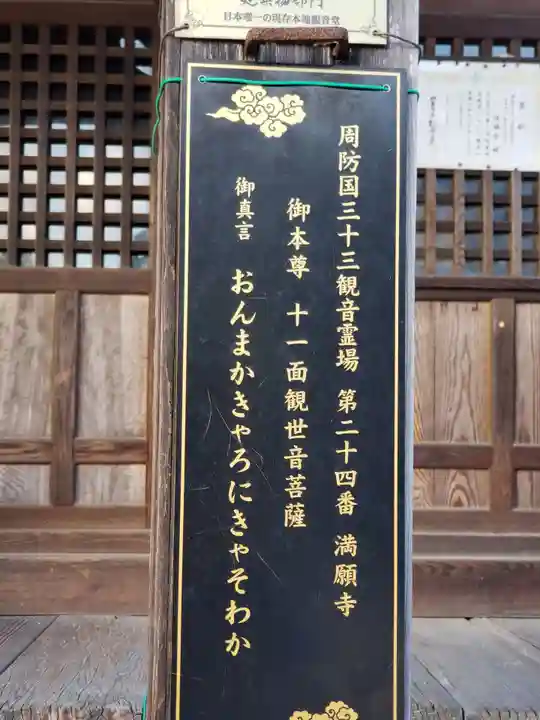 日本唯一の現存本地観音堂
周防国三十三観音霊場 第二十四番 満願寺
御本尊 十一面観世音菩薩
御真言 おんまかきゃろにきゃそわか